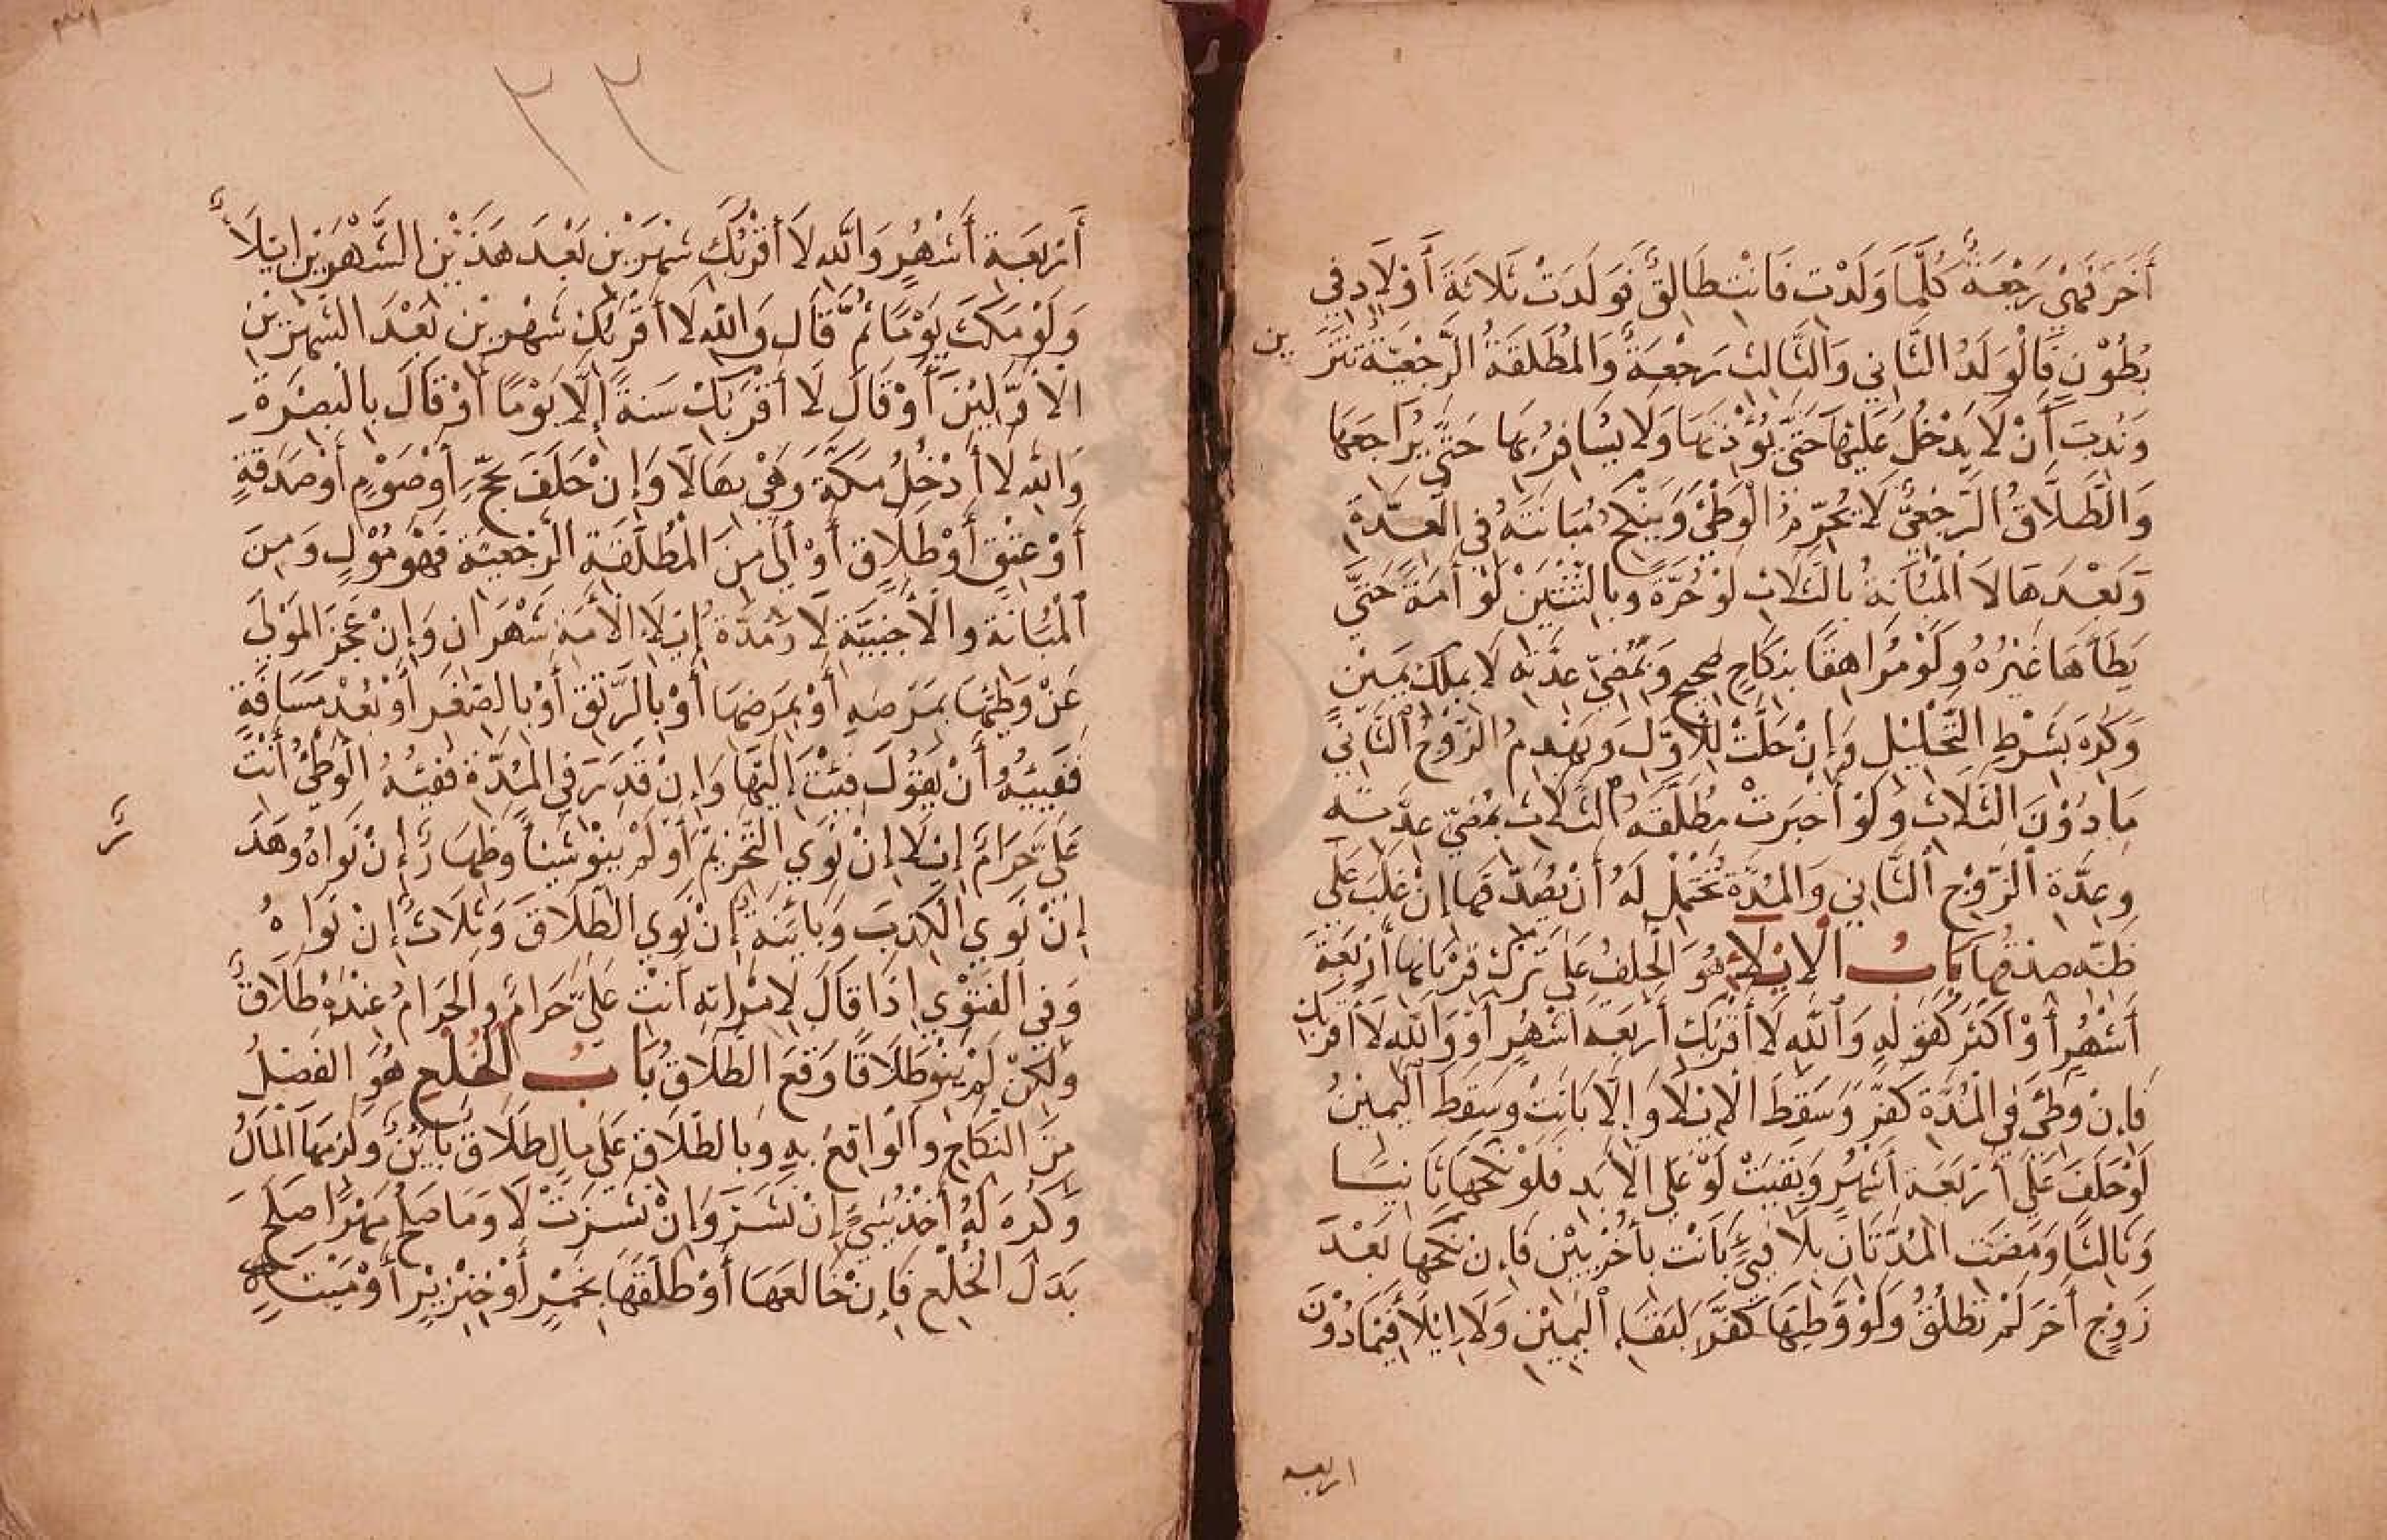 أَخَرَ فَهِيَ رَجْعَةٌ كُلَّمَا وَلَدْتِ فَانْتِ طَالِقٌ فَوَلَدَتْ ثَلَاثَةَ أَوْلَادٍ فِي
بُطُوْنٍ فَالْوَلَدُ الثَّانِي وَالثَّالِثُ رَجْعَةٌ وَالْمُطَلَّقَةُ الرَّجْعِيَّةُ تَتَزَ
ين
وَنُدِبَ أَنْ لَا يَدْخُلَ عَلَيْهَا حَتَّى يُؤْذِنَهَا وَلَا يُسَافِرُ بِهَا حَتَّى يُرَاجِعَهَا
وَالطَّلَاقُ الرَّجْعِيُّ لَا يُحَرِّمُ الْوَطْئَ وَيَنْكِحُ مُبَانَتَهُ فِي الْعِدَّةِ
وَبَعْدَهَا لَا الْمُبَانَةُ بِالثَّلَاثِ لَوْ حُرَّةً وَبِالثِّنْتَيْنِ لَوْ أَمَةً حَتَّى
يَطَأَهَا غَيْرُهُ وَلَوْ مُرَاهِقًا بِنِكَاحٍ صَحِيحٍ وَتَمْضِيَ عِدَّتُهُ لَا بِمِلْكِ يَمِيْنٍ
وَكُرِهَ بِشَرْطِ التَّحْلِيْلِ وَإِنْ حَلَّتْ لِلْأَوَّلِ وَيَهْدِمُ الزَّوْجُ الثَّانِي
مَا دُوْنَ الثَّلَاثِ وَلَوْ أَخْبَرَتْ مُطَلَّقَةُ الثَّلَاثِ بِمُضِيِّ عِدَّتِهِ
وَعِدَّةِ الزَّوْجِ الثَّانِي وَالْمُدَّةُ تَحْتَمِلُ لَهُ أَنْ يُصَدِّقَهَا إِنْ غَلَبَ عَلَى
ظَنِّهِ صِدْقُهَا بَابُ الْإِيْلَاءِ هُوَ الْحَلِفُ عَلَى تَرْكِ قُرْبَانِهَا أَرْبَعَةَ
أَشْهُرٍ أَوْ أَكْثَرَ كَقَوْلِهِ وَاللّٰهِ لَا أَقْرَبُكِ أَرْبَعَةَ أَشْهُرٍ أَوْ وَاللّٰهِ لَا أَقْرَبُكِ
فَإِنْ وَطِئَ فِي الْمُدَّةِ كَفَّرَ وَسَقَطَ الْإِيْلَا وَإِلَّا بَانَتْ وَسَقَطَ الْيَمِيْنُ
لَوْ حَلَفَ عَلَى أَرْبَعَةِ أَشْهُرٍ وَبَقِيَتْ لَوْ عَلَى الْأَبَدِ فَلَوْ نَكَحَهَا ثَانِيًا
وَثَالِثًا وَمَضَتِ الْمُدَّتَانِ بِلَا فَيْءٍ بَانَتْ بِأُخْرَيَيْنِ فَإِنْ نَكَحَهَا بَعْدَ
زَوْجٍ أَخَرَ لَمْ تَطْلُقْ وَلَوْ وَطِئَهَا كَفَّرَ لِبَقَاءِ الْيَمِيْنِ وَلَا إِيْلَا فِيْمَا دُوْنَ
اربعه
٢٣
أَرْبَعَةِ أَشْهُرٍ وَاللّٰهِ لَا أَقْرَبُكِ شَهْرَيْنِ بَعْدَ هَذَيْنِ الشَّهْرَيْنِ إِيْلَاءٌ
وَلَوْ مَكَثَ يَوْمًا ثُمَّ قَالَ وَاللّٰهِ لَا أَقْرَبُكِ شَهْرَيْنِ بَعْدَ الشَّهْرَيْنِ
الْأَوَّلَيْنِ أَوْ قَالَ لَا أَقْرَبُكِ سَنَةً إِلَّا يَوْمًا أَوْ قَالَ بِالْبَصْرَةِ
وَاللّٰهِ لَا أَدْخُلُ مَكَّةَ وَهْيَ بِهَا لَا وَإِنْ حَلَفَ بِحَجٍّ أَوْ صَوْمٍ أَوْ صَدَقَةٍ
أَوْ عِتْقٍ أَوْ طَلَاقٍ أَوْ آلَى مِنَ الْمُطَلَّقَةِ الرَّجْعِيَّةِ فَهُوَ مُوْلٍ وَمِنَ
الْمُبَانَةِ وَالْأَجْنَبِيَّةِ لَا وَمُدَّةُ إِيْلَا الْأَمَةِ شَهْرَانِ وَإِنْ عَجَزَ الْمُوْلَى
عَنْ وَطْئِهَا بِمَرَضِهِ أَوْ بِمَرَضِهَا أَوْ بِالرَّتْقِ أَوْ بِالصِّغَرِ أَوْ بُعْدِ مَسَافَةٍ
فَفَيْئُهُ أَنْ يَقُوْلَ فِئْتُ إِلَيْهَا وَإِنْ قَدَرَ فِي الْمُدَّةِ فَفَيْئُهُ الْوَطْئُ أَنْتِ
عَلَيَّ حَرَامٌ إِيْلَا إِنْ نَوَى التَّحْرِيْمَ أَوْ لَمْ يَنْوِ شَيْئًا وَظِهَارٌ إِنْ نَوَاهُ وَهَدَ
ر
إِنْ نَوَى الْكَذِبَ وَبَائِنَةٌ إِنْ نَوَى الطَّلَاقَ وَثَلَاثٌ إِنْ نَوَاهُ
وَفِي الْفَتْوَى إِذَا قَالَ لِامْرَاتِهِ أَنْتِ عَلَيَّ حَرَامٌ وَالْحَرَامُ عِنْدَهُ طَلَاقٌ
وَلَكِنْ لَمْ يَنْوِ طَلَاقًا وَقَعَ الطَّلَاقُ بَابُ الْخُلْعِ هُوَ الْفَصْلُ
مِنَ النِّكَاحِ وَالْوَاقِعُ بِهِ وَبِالطَّلَاقِ عَلَى مَالٍ طَلَاقٌ بَائِنٌ وَلَزِمَهَا الْمَالُ
وَكُرِهَ لَهُ أَخْذُ شَيْءٍ إِنْ نَشَزَ وَإِنْ نَشَزَتْ لَا وَمَا صَلَحَ مَهْرًا صَلَحَ
بَدَلَ الْخُلْعِ فَإِنْ خَالَعَهَا أَوْ طَلَّقَهَا بِخَمْرٍ أَوْ خِنْزِيْرٍ أَوْ مَيْتَةٍ